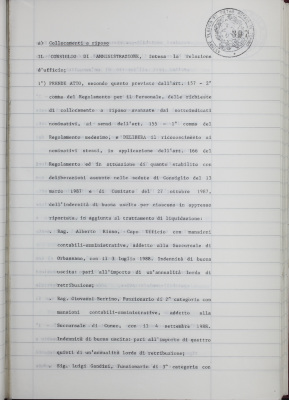 a) Collocamenti a riposo
IL CONSIGLIO DI AMMINISTRAZIONE, intesa la Relazione
d'ufficio;
1°) PRENDE ATTO, secondo quanto previsto dell'art. 157 - 2°
comma del Regolamento per il Personale, delle richieste
di collocamento a riposo avanzate dai sottoindicati
nominativi, ai sensi dell'art. 155 - 1° comma del
Regolamento medesimo, e DELIBERA il riconoscimento ai
nominativi stessi, in applicazione dell'art. 166 del
Regolamento ed in attuazione di quanto stabilito con
deliberazioni assunte nelle sedute di Consiglio del 13
marzo 1987 e di Comitato del 27 ottobre 1987,
dell'indennità di buona uscita per ciascuno in appresso
riportata, in aggiunta al trattamento di liquidazione:
. Rag. Alberto Risso, Capo Ufficio con mansioni
contabili-amministrative, addetto alla Succursale di
Orbassano, con il 2 luglio 1988. Indennità di buona
uscita: pari all'importo di un'annualità lorda di
retribuzione;
. Rag. Giovanni Bertino, Funzionario di 2° categoria con
mansioni contabili-amministrative, addetto alla
Succursale di Cuneo, con il 4 settembre 1988.
Indennità di buona uscita: pari all'importo di quattro
quinti di un'annualità lorda di retribuzione;
. Sig. Luigi Sandini, funzionario di 3° categoria con